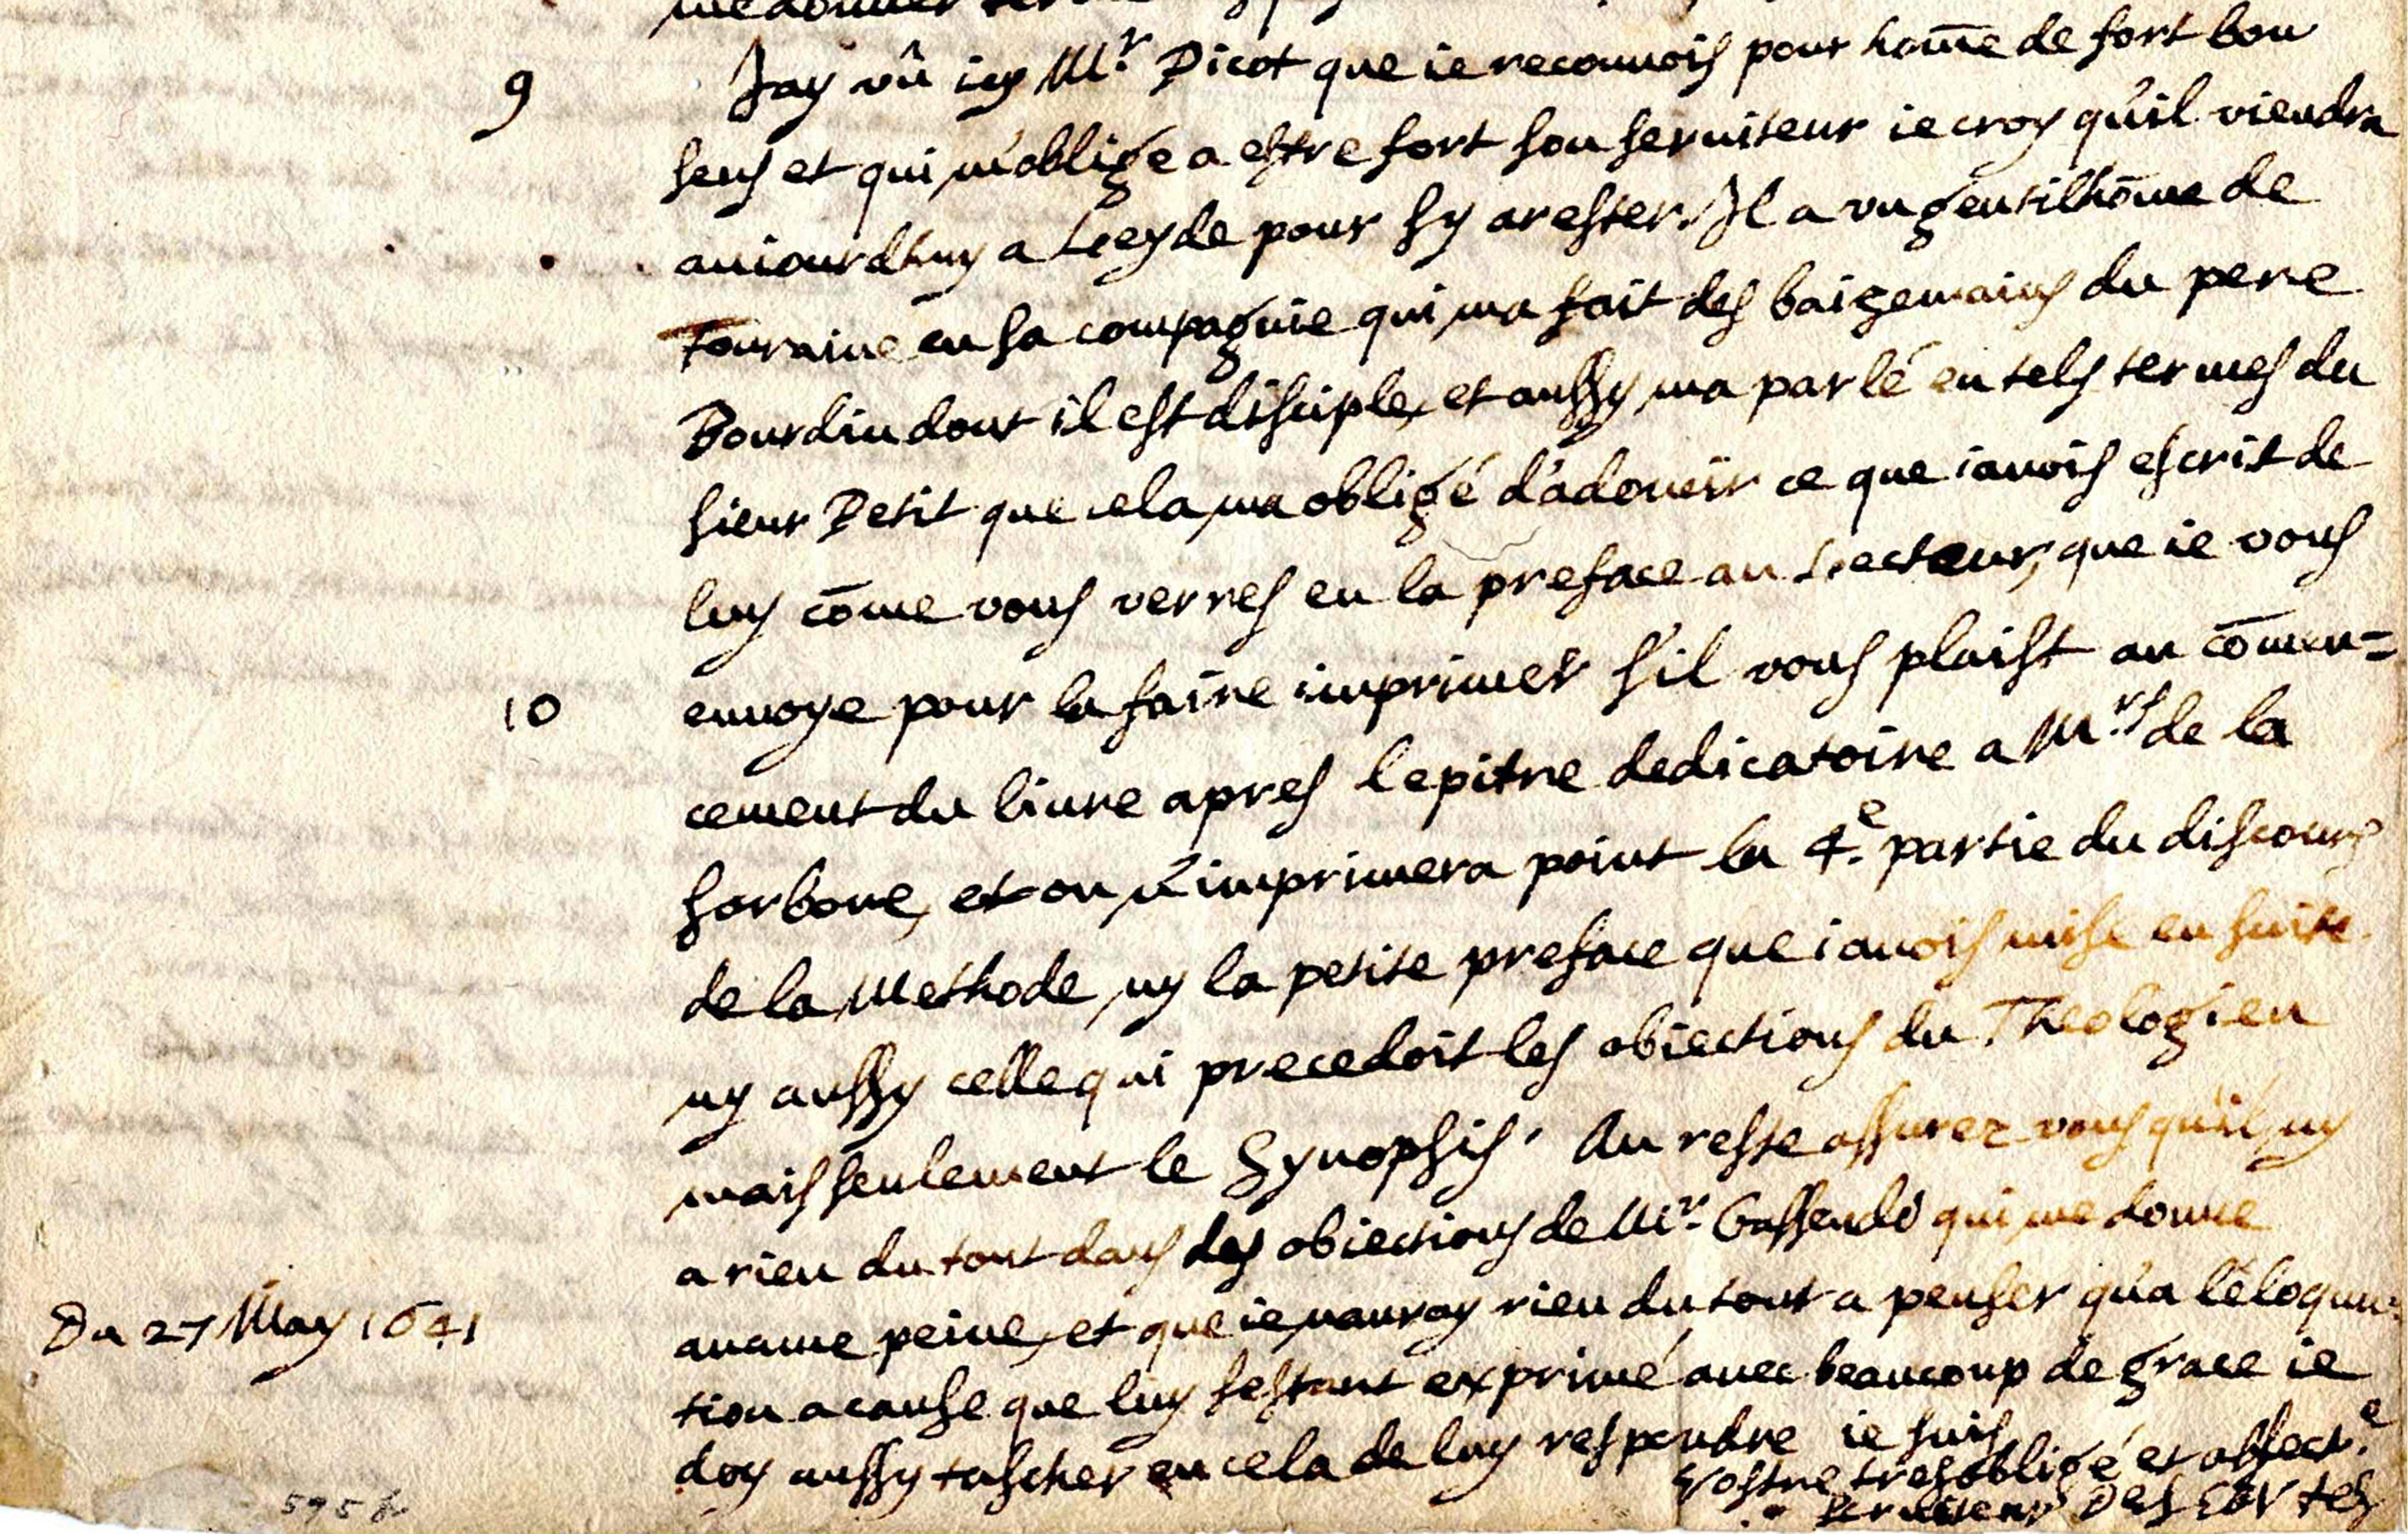 9 Jay vû icy Mr. Picot que ie reconnois pour hom̄e de fort bon
sens et qui m'oblige a estre fort son seruiteur ie croy qu'il viendra
auiourdhuy a Leyde pour sy arester. Il a vn gentilhōme de
Touraine en sa compagnie qui ma fait des baizemains du pere
Bourdin dont il est disciple, et aussy ma parlé en tels termes du
sieur Petit que cela ma obligé d'adoucir ce que iauois escrit de
luy cōme vous verres en la preface au Lecteur, que ie vous
10 enuoye pour la faire imprimer s'il vous plaist au cōmen=
cement du liure apres lepitre dedicatoire a Mrs. de la
sorbone, et on n'imprimera point la 4e. partie du discours
de la Methode, ny la petite preface que iauois mise en suite
ny aussy celle qui precedoit les obiections du Theologien
mais seulement le Synopsis. Au reste assurez vous qu'il ny
a rien du tout dans les obiections de Mr. Gassendi qui me donne
aucune peine, et que ie nauray rien du tout a penser qu'a l'éloqun=
Du 27 May 1641
tion a cause que luy sestant exprimé auec beaucoup de grace ie
doy aussy tascher en cela de luy respondre ie suis
Vostre tresobligé et affect.e
seruiteur Descartes